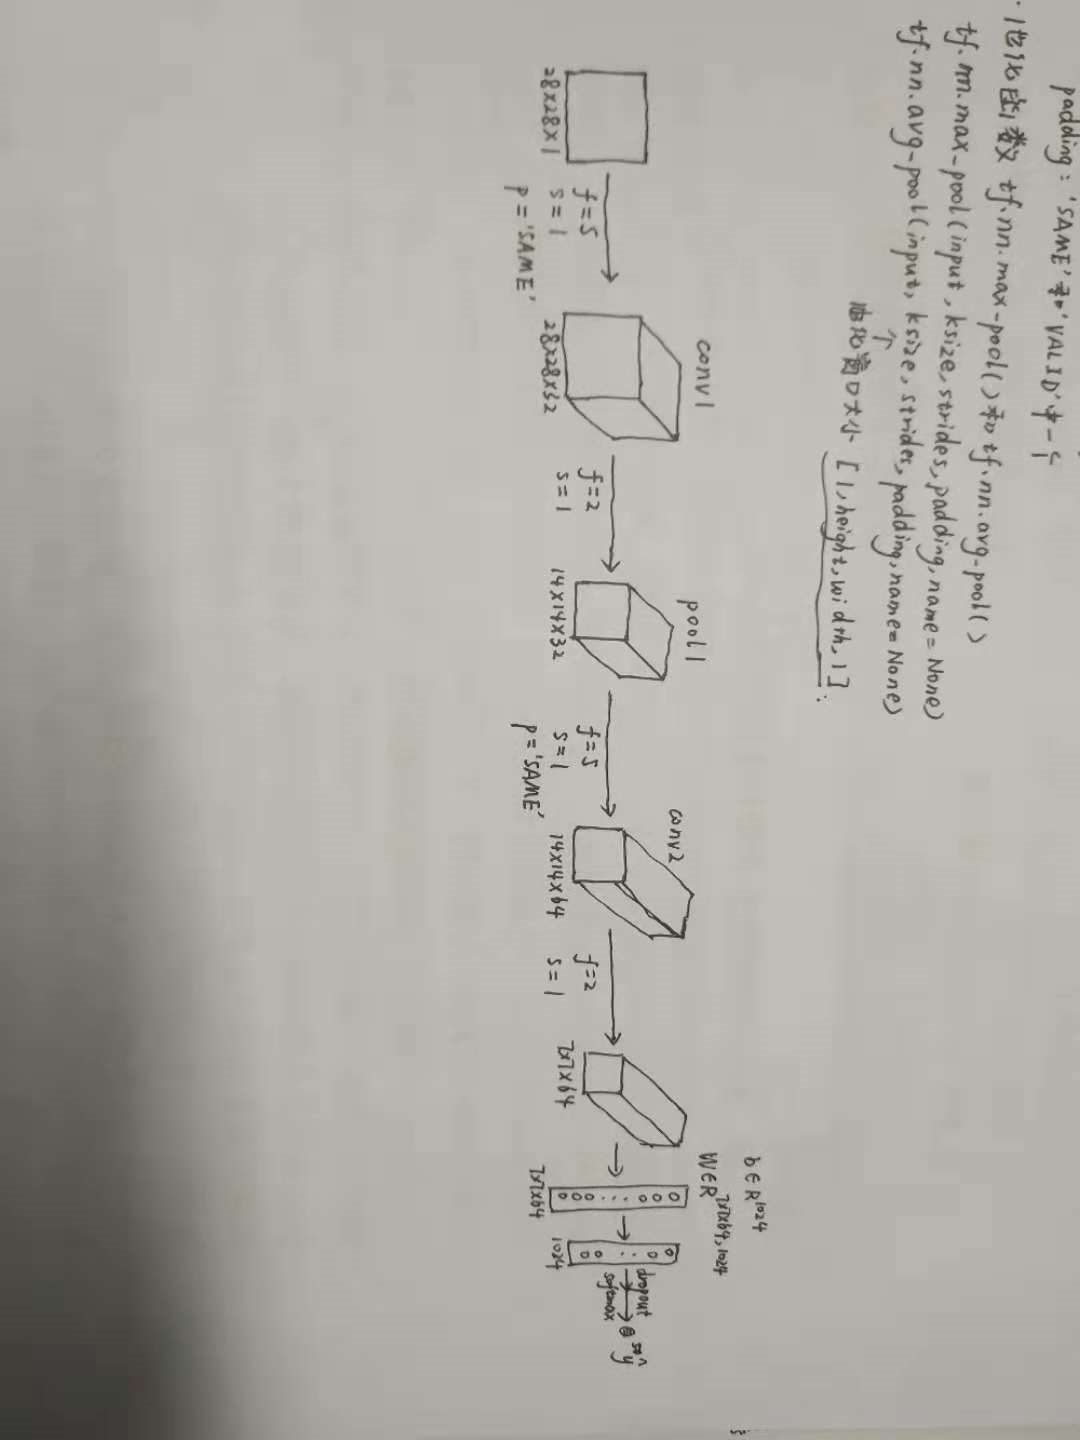 padding: 'SAME'和'VALID'中一个
· 池化函数 tf.nn.max-pool()和tf.nn.avg-pool()
tf.nn.max-pool(input, ksize, strides, padding, name=None)
tf.nn.avg-pool(input, ksize, strides, padding, name=None)
↑
池化窗口大小 [1, height, width, 1].
28x28x1
f=5
s=1
p='SAME'
conv1
28x28x32
f=2
s=1
pool1
14x14x32
f=5
s=1
p='SAME'
conv2
14x14x64
f=2
s=1
7x7x64
b∈R^1024
W∈R^7x7x64,1024
7x7x64
1024
dropout
softmax
ŷ